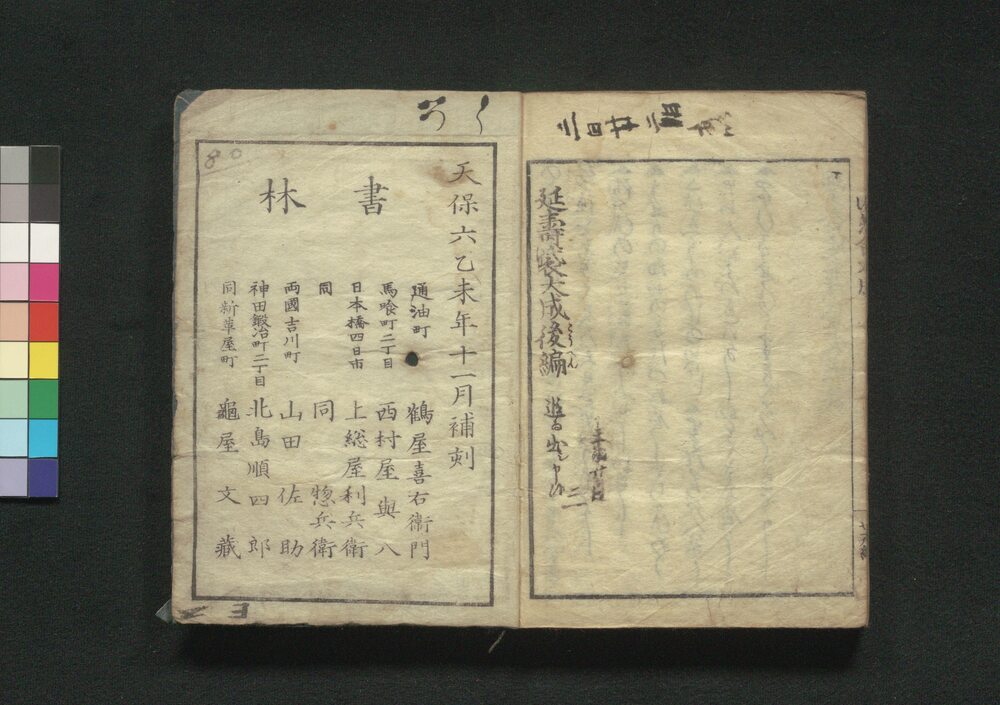 延壽袋大成後編
こうへん
天保六乙未年十一月補刻
書林
通油町 鶴屋喜右衞門
馬喰町二丁目 西村屋與八
日本橋四日市 上総屋利兵衞
同 同 惣兵衛
両國吉川町 山田佐助
神田鍛冶町二丁目 北島順四郎
同新革屋町 龜屋文藏
80